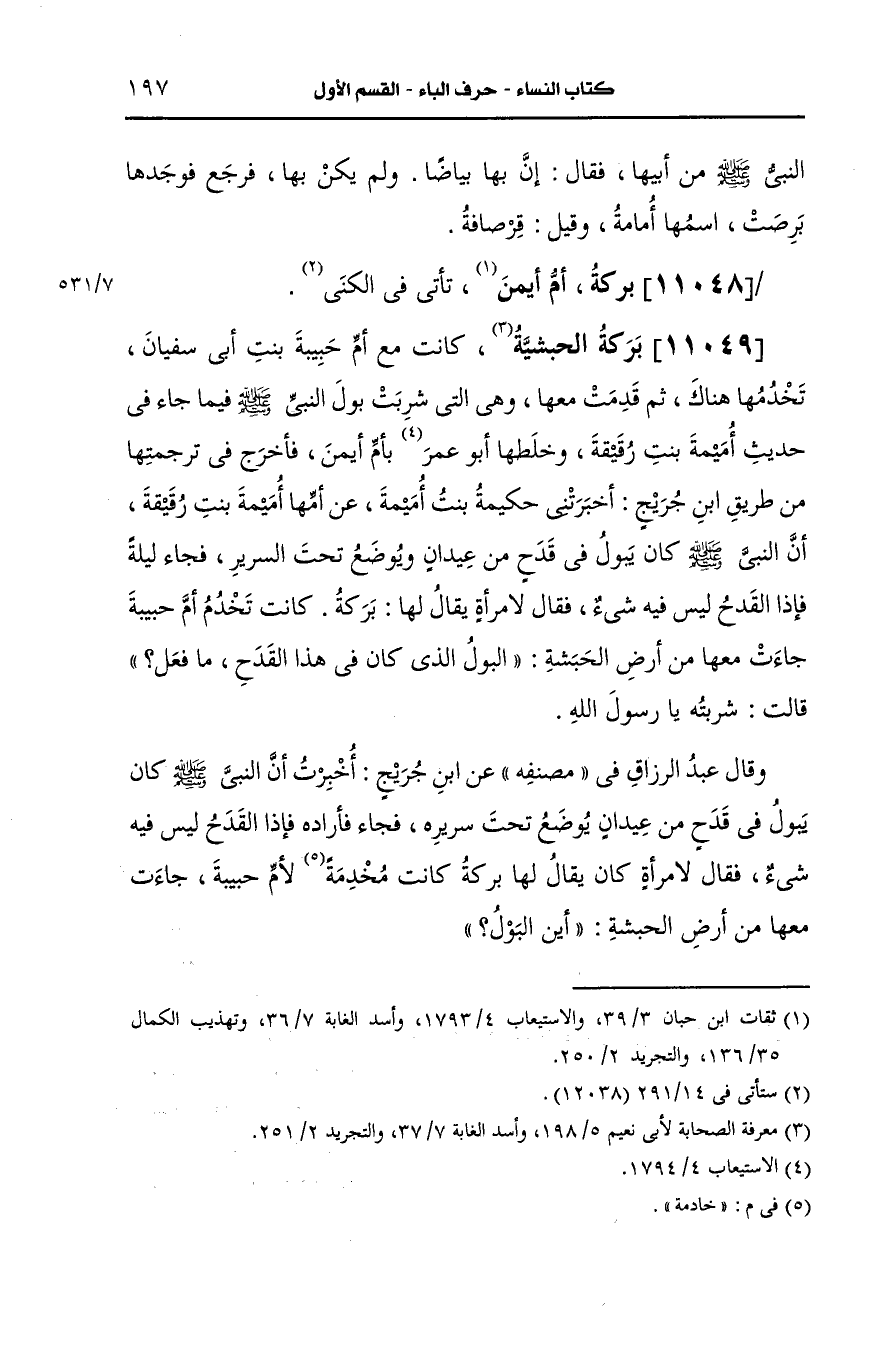 كتاب النساء - حرف الباء - القسم الأول ١٩٧
النبىُّ ﷺ من أبيها ، فقال : إنَّ بها بياضًا . ولم يكنْ بها ، فرجَع فوجَدها
بَرِصَتْ ، اسمُها أُمامةُ ، وقيل : قِرْصافةُ .
/[١١٠٤٨] بركةُ ، أمُّ أيمنَ(١) ، تأتى فى الكنَى(٢) . ٥٣١/٧
[١١٠٤٩] بَرَكةُ الحبشيَّةُ(٣) ، كانت مع أمِّ حَبِيبةَ بنتِ أبى سفيانَ ،
تَخْدُمُها هناكَ ، ثم قَدِمَتْ معها ، وهى التى شرِبَتْ بولَ النبىِّ ﷺ فيما جاء فى
حديثِ أُمَيْمةَ بنتِ رُقَيْقةَ ، وخلَطها أبو عمرَ(٤) بأمِّ أيمنَ ، فأخرَج فى ترجمتِها
من طريقِ ابنِ جُرَيْجٍ : أخبَرَتْنِى حكيمةُ بنتُ أُمَيْمةَ ، عن أمِّها أُمَيْمةَ بنتِ رُقَيْقةَ ،
أنَّ النبىَّ ﷺ كان يَبولُ فى قَدَحٍ من عِيدانٍ ويُوضَعُ تحتَ السريرِ ، فجاء ليلةً
فإذا القَدحُ ليس فيه شىءٌ ، فقال لامرأةٍ يقالُ لها : بَرَكةُ . كانت تَخْدُمُ أمَّ حبيبةَ
جاءَتْ معها من أرضِ الحَبَشةِ : « البولُ الذى كان فى هذا القَدَحِ ، ما فعَل؟ »
قالت : شربتُه يا رسولَ اللهِ .
وقال عبدُ الرزاقِ فى « مصنفِه » عن ابنِ جُرَيْجٍ : أُخْبِرْتُ أنَّ النبىَّ ﷺ كان
يَبولُ فى قَدَحٍ من عِيدانٍ يُوضَعُ تحتَ سريرِه ، فجاء فأراده فإذا القَدَحُ ليس فيه
شىءٌ ، فقال لامرأةٍ كان يقالُ لها بركةُ كانت مُخْدِمَةً(٥) لأمِّ حبيبةَ ، جاءَت
معها من أرضِ الحبشةِ : « أين البَوْلُ؟ »
(١) ثقات ابن حبان ٣/ ٣٩، والاستيعاب ٤/ ١٧٩٣، وأسد الغابة ٧/ ٣٦، وتهذيب الكمال
٣٥/ ١٣٦، والتجريد ٢/ ٢٥٠.
(٢) ستأتى فى ١٤/ ٢٩١ (١٢٠٣٨).
(٣) معرفة الصحابة لأبى نعيم ٥/ ١٩٨، وأسد الغابة ٧/ ٣٧، والتجريد ٢/ ٢٥١.
(٤) الاستيعاب ٤/ ١٧٩٤.
(٥) فى م : « خادمة » .